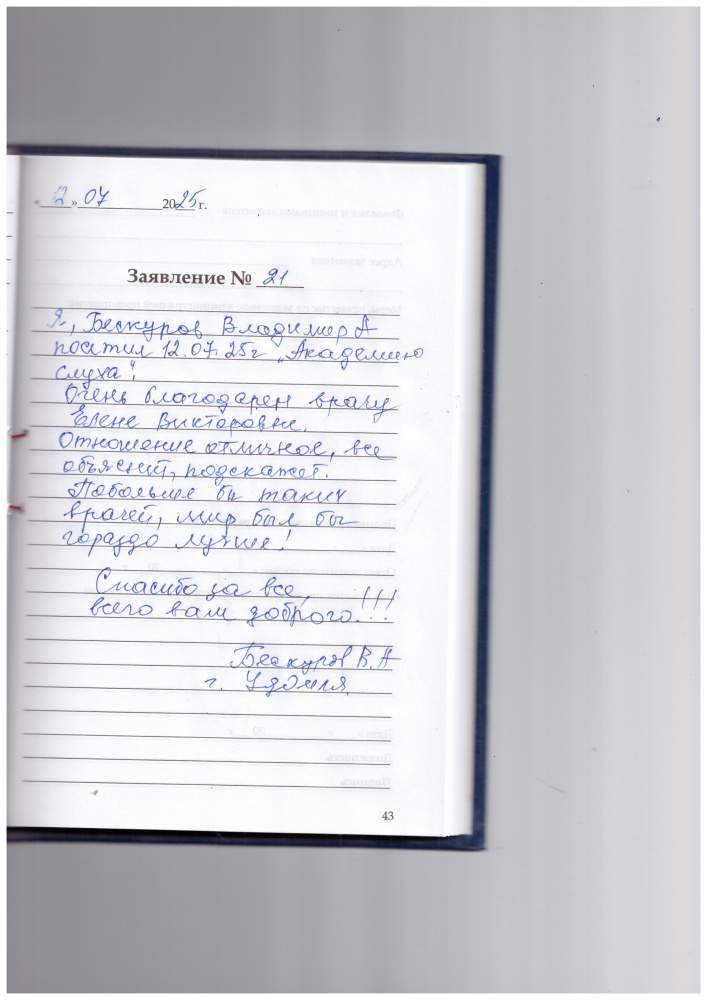 «12» 07 2025 г.
Заявление № 21
Я, Бескуров Владимир А
посетил 12.07.25г „Академию
слуха".
Очень благодарен врачу
Елене Викторовне.
Отношение отличное, все
объяснит, подскажет.
Побольше бы таких
врачей, мир был бы
гораздо лучше!
Спасибо за все,
всего вам доброго!!!
Бескуров В.А
г. Удомля.
43